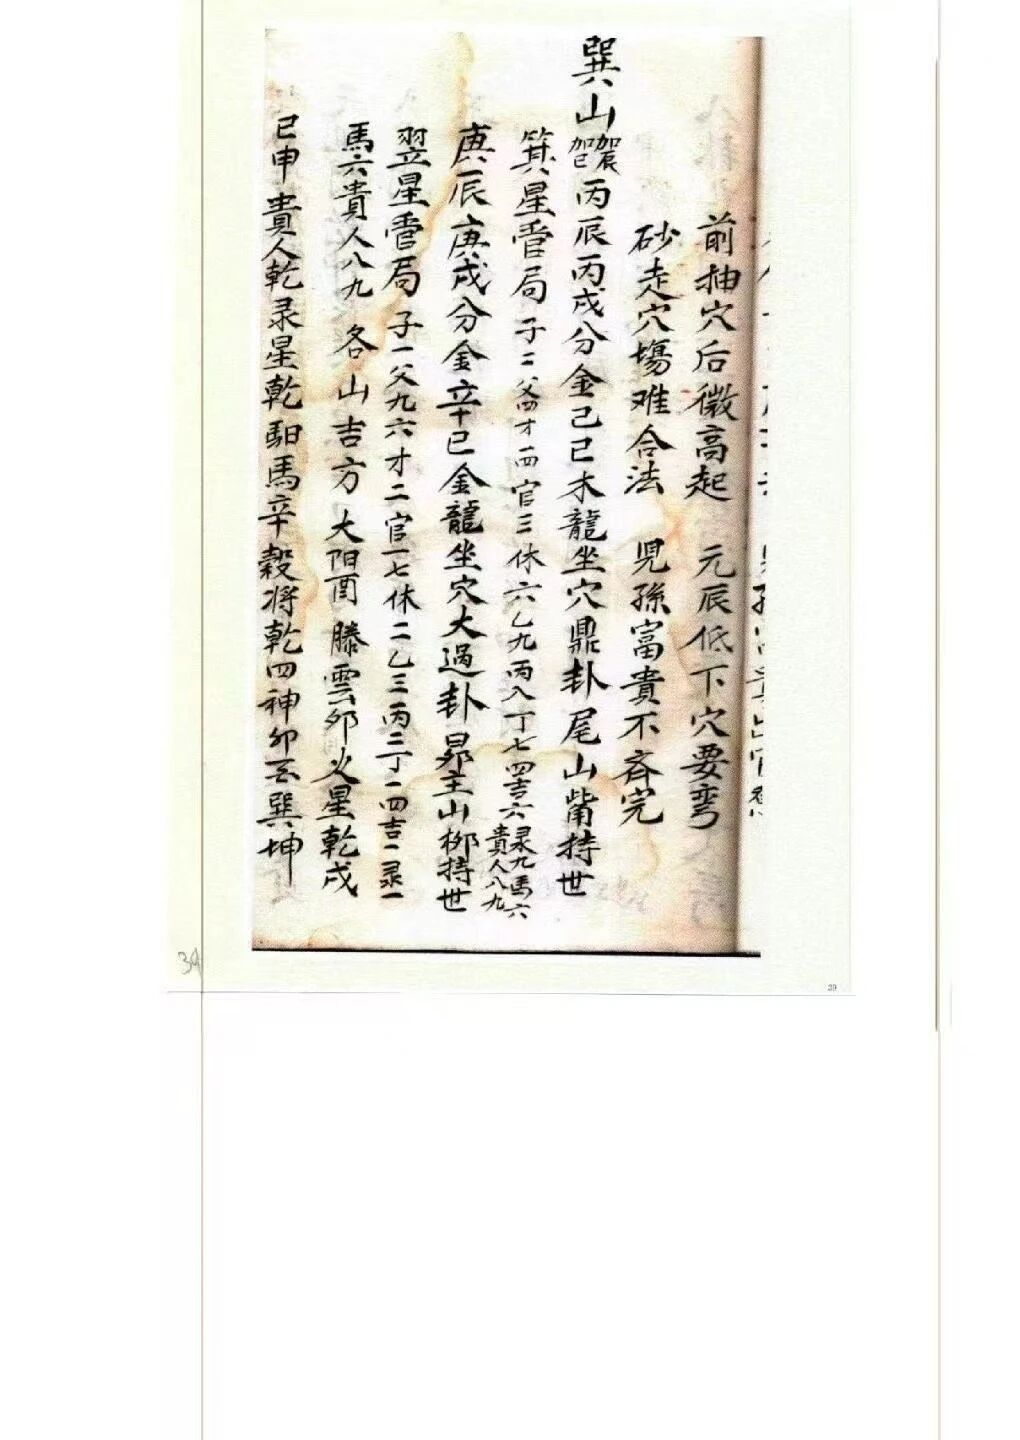 前抽穴后微高起 元辰低下穴要弯
砂走穴塲难合法 児孫富貴不斉完
巽山加辰加巳丙辰丙戌分金己巳木龍坐穴鼎卦尾山觜持世
箕星管局子二父四才一四官三休六乙九丙八丁七四吉六录九馬六貴人八九
庚辰庚戌分金辛巳金龍坐穴大過卦昴主山柳持世
翌星管局子一父九六才二官一七休二乙三丙三丁一四吉一录一
馬六貴人八九 各山吉方 大阳酉 滕雲卯火星乾戌
巳申貴人乾录星乾馹馬辛穀将乾四神卯云巽坤
39
39